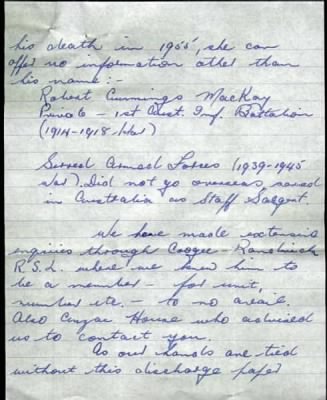 his death in 1955, she can
offer no information other than
his name :-
Robert Cummings MacKay
Private - 1st Aust. Inf. Battalion
(1914-1918 War)
Served Armed Forces (1939-1945
War). Did not go overseas, served
in Australia as Staff Sargent.
We have made extensive
enquiries through Coogee - Randwick
R.S.L. where we knew him to
be a member - for unit,
number etc. - to no avail.
Also Anzac House who advised
us to contact you.
As our hands are tied
without this discharge paper